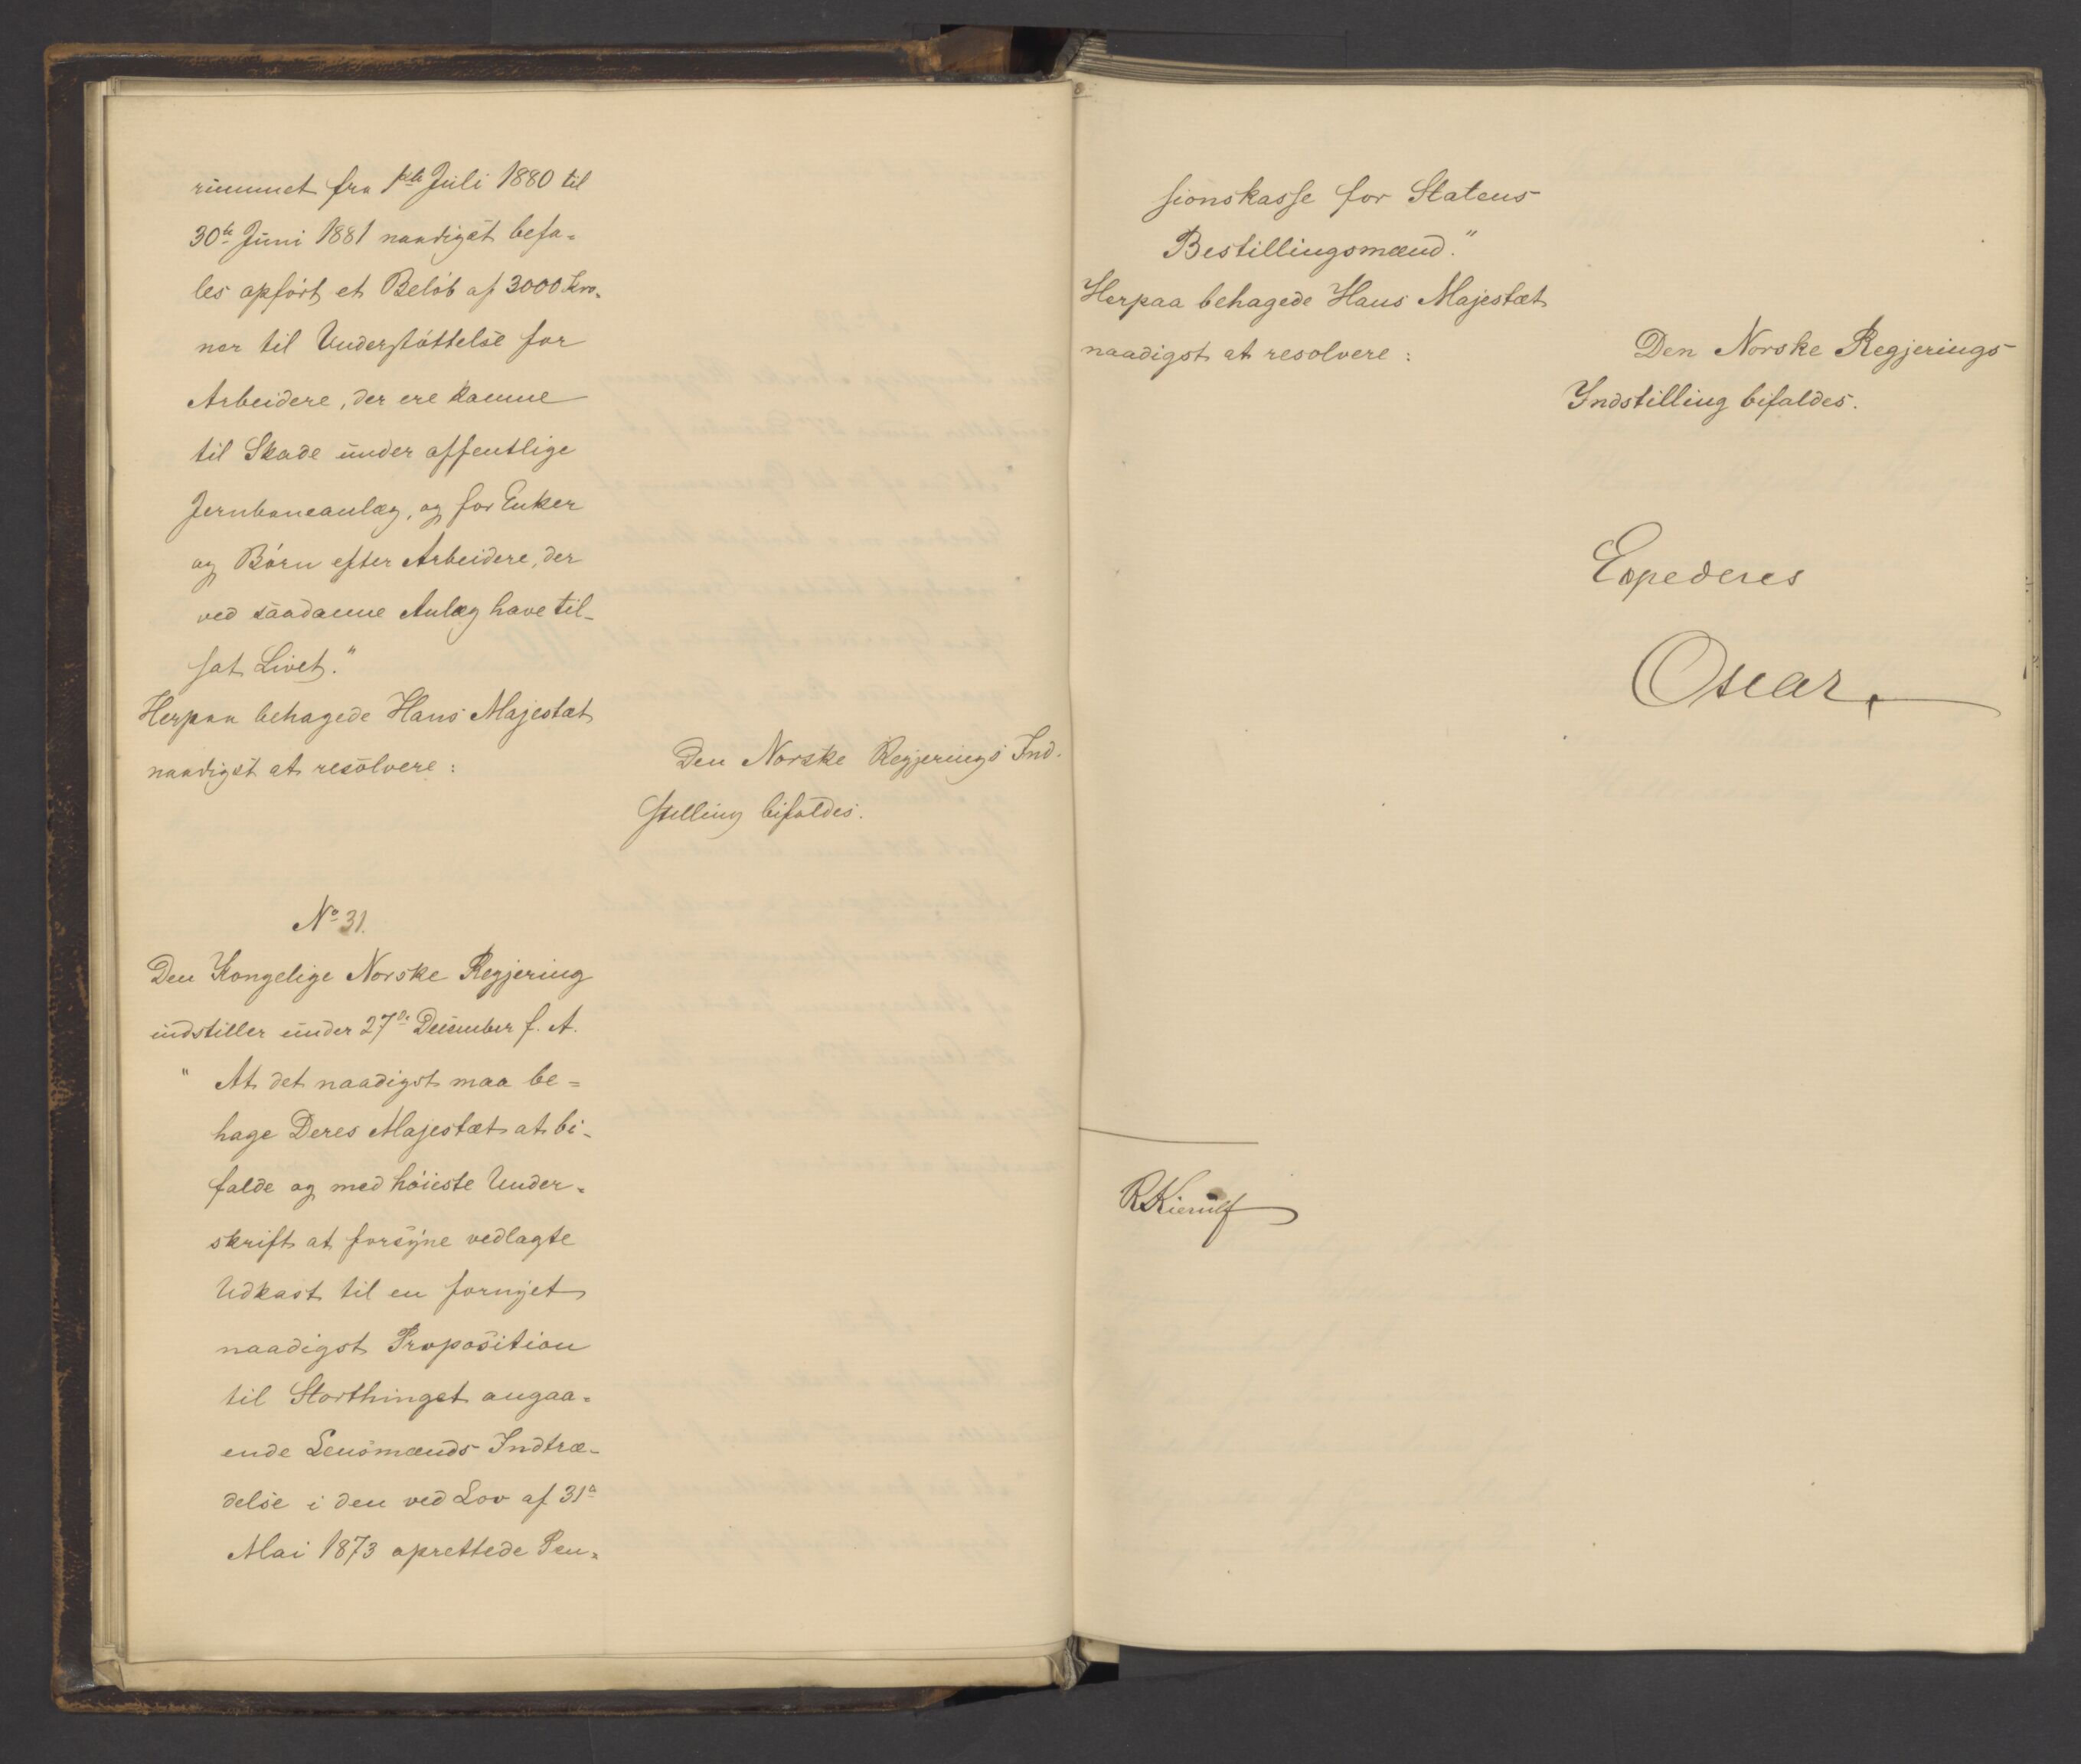 rummet fra 1ste Juli 1880 til
30te Juni 1881 naadigst befa-
les opført et Beløb af 3000 Kro-
ner til Understøttelse for
Arbeidere, der ere komne
til Skade under offentlige
Jernbaneanlæg, og for Enker
og Børn efter Arbeidere, der
ved saadanne Anlæg have til-
sat Livet."
Herpaa behagede Hans Majestæt
naadigst at resolvere:
Den Norske Regjerings Ind-
stilling bifaldes.
No 31.
Den Kongelige Norske Regjering
indstiller under 27de December f. A.
" At det naadigst maa be=
hage Deres Majestæt at bi-
falde og med høieste Under-
skrift at forsyne vedlagte
Udkast til en fornyet
naadigst Proposition
til Storthinget angaa-
ende Lensmænds Indtræ-
delse i den ved Lov af 31te
Mai 1873 oprettede Pen-
sionskasse for Statens
Bestillingsmænd."
Herpaa behagede Hans Majestæt
naadigst at resolvere:
Den Norske Regjerings
Indstilling bifaldes.
Expederes
Oscar.
RKierulf